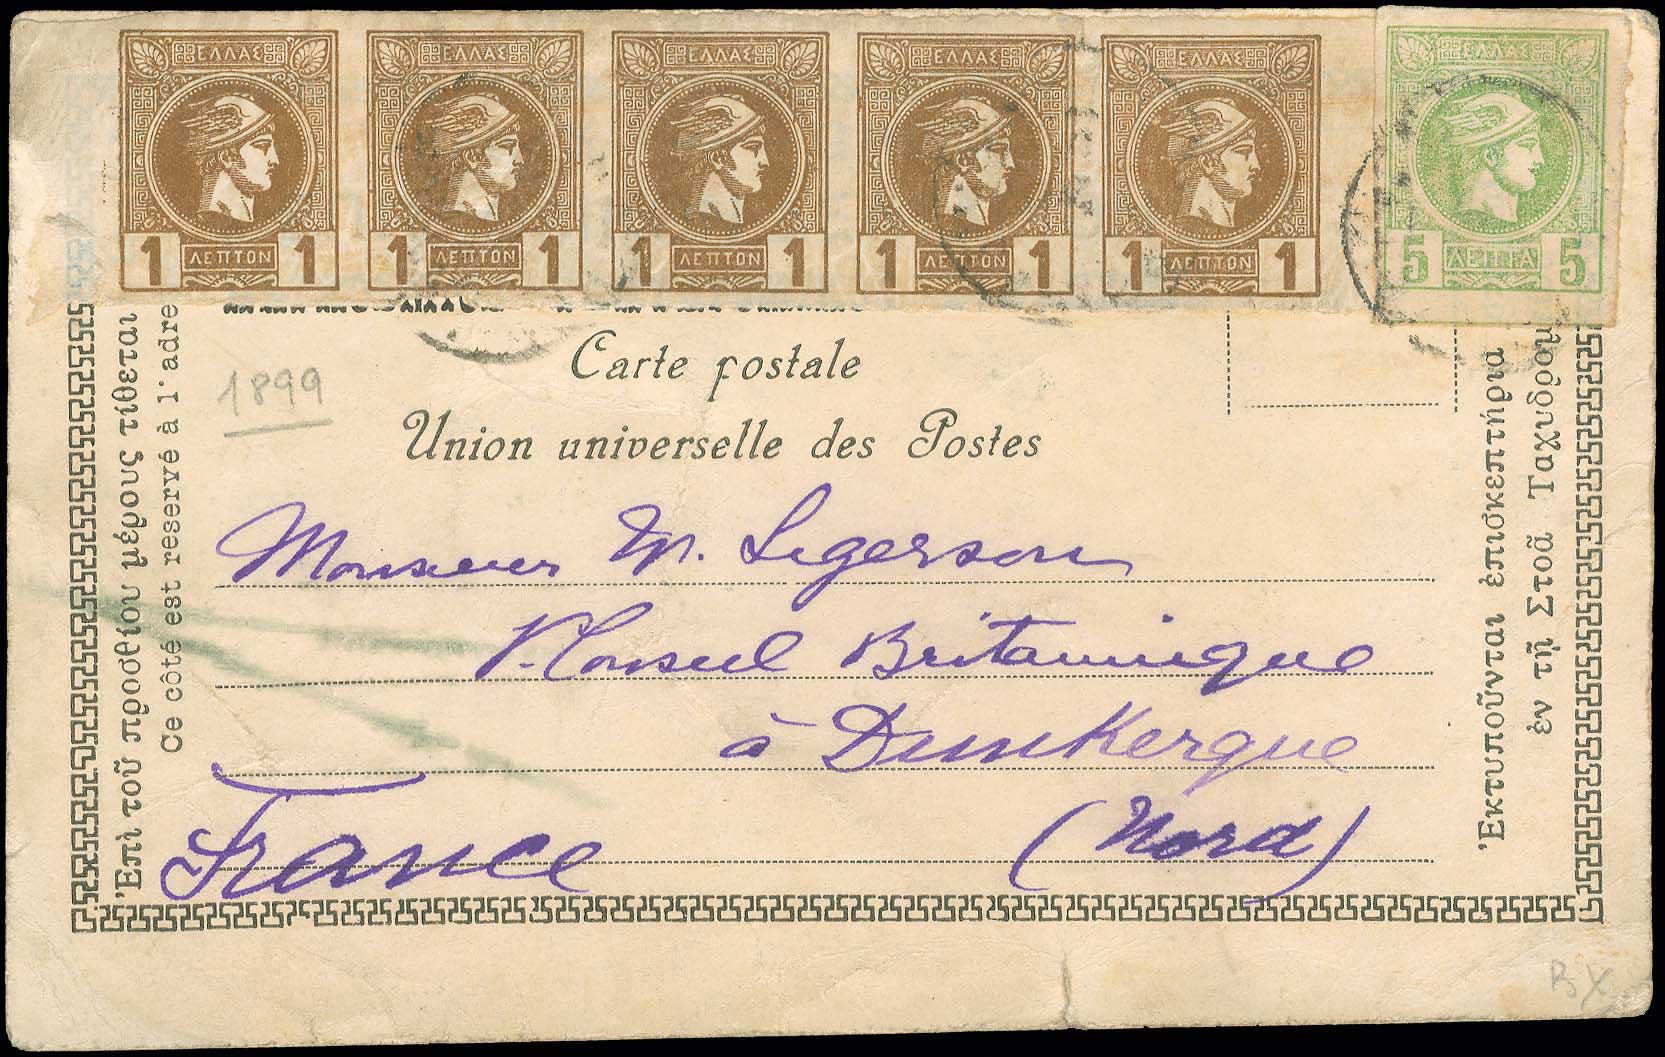 ΕΛΛΑΣ ΕΛΛΑΣ ΕΛΛΑΣ ΕΛΛΑΣ ΕΛΛΑΣ ΕΛΛΑΣ
1 ΛΕΠΤΟΝ 1 1 ΛΕΠΤΟΝ 1 1 ΛΕΠΤΟΝ 1 1 ΛΕΠΤΟΝ 1 1 ΛΕΠΤΟΝ 1 5 ΛΕΠΤΑ 5
Carte postale
1899
Union universelle des Postes
Monsieur M. Sigerson
V. Consul Britannique
à Dunkerque
(Nord)
France
Ἐπὶ τοῦ προσθίου μέρους τίθεται
Ce côté est reservé à l'adre
Ἐκτυποῦνται ἐπισκεπτήρια
ἐν τῇ Στοᾶ Ταχυδρομ